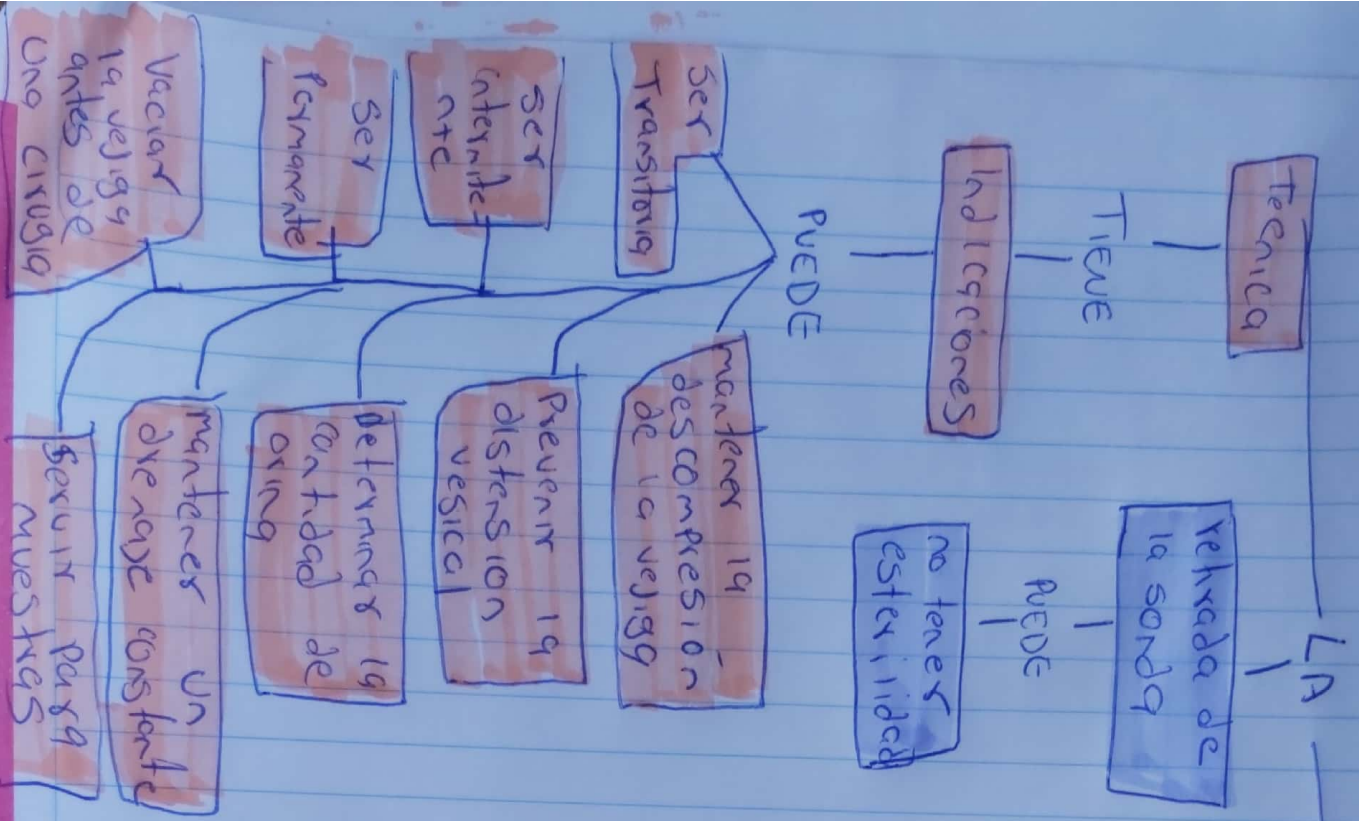 LA
Técnica
TIENE
Indicaciones
PUEDE
Ser
Transitoria
Ser
intermite
nte
Ser
Permanente
Vaciar
la vejiga
antes de
una cirugia
mantener la
descompresión
de la vejiga
Prevenir la
distension
vesical
Determinar la
cantidad de
orina
mantener un
drenaje constante
Servir para
muestras
retirada de
la sonda
PUEDE
no tener
esterilidad